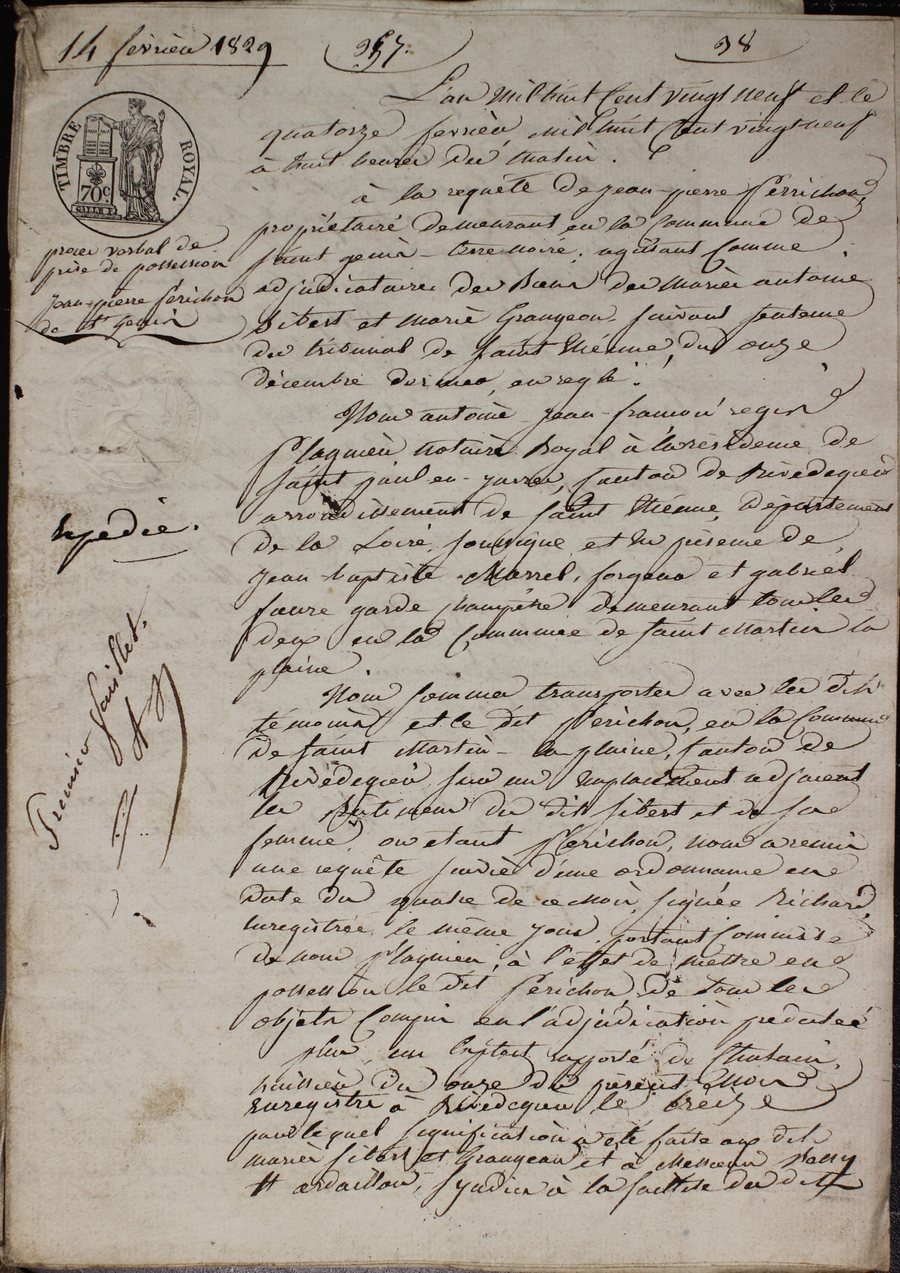 14 février 1829
257.
38
TIMBRE ROYAL.
70c
procès verbal de
prise de possession
jean-pierre Périchon
de St Genis
Expédié.
Premier feuillet.
L'an mil huit Cent vingt neuf et le
quatorze fevrier, mil huit Cent vingt neuf
à huit heures du matin.
à la requête de jean-pierre Perrichon,
propriétaire demeurant en la Commune de
saint genis-terrenoire; agissant Comme
adjudicataire des Biens des mariés antoine
Sibert et marie Grangeon, suivant sentence
du tribunal de saint étienne, du onze
décembre dernier, en regle.
Nous antoine-jean-françois regis
Plagnieu notaire Royal à la résidence de
saint paul en-jarrez, Canton de Rivedegier
arrondissement de saint étienne, Département
de la Loire, soussigné, et en présence de
jean-baptiste Marrel, forgeur et gabriel
faure garde champêtre demeurant tous les
deux en la Commune de saint Martin la
plaine.
Nous sommes transportés avec les dits
témoins et le dit Perichon, en la Commune
de saint Martin-la plaine, Canton de
Rivedegier sur un emplacement adjacent
les Bâtiments du dit Sibert et de sa
femme, où etant Perichon, nous a remis
une requête suivie d'une ordonnance en
date du quatre de ce mois, signée Richard,
enregistrée le même jour, portant Commise
de nous Plagnieu, à l'effet de mettre en
possession le dit Perichon, de tous les
objets Compris en l'adjudication prédatée
plus, un Exploit rapporté de
huissier du onze du présent mois
enregistré à Rivedegier le treize
par lequel signification a été faite aux dits
mariés Sibert et Grangeon et à Messieurs
et ardaillon, syndics à la faillite du dit